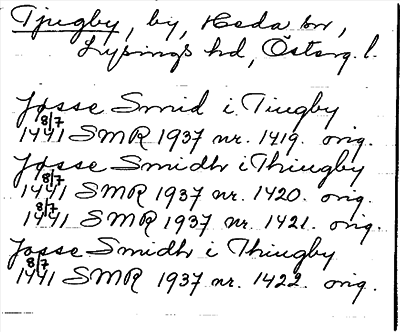 Tjugby, by, Heda sn,
Lysings hd, Östg. l.
Josse Smid i Tiugby
8/7
1441 SMR 1937 nr. 1419. orig.
Josse Smidh i Thiugby
8/7
1441 SMR 1937 nr. 1420. orig.
8/7
1441 SMR 1937 nr. 1421. orig.
Josse Smidh i Thiugby
8/7
1441 SMR 1937 nr. 1422. orig.